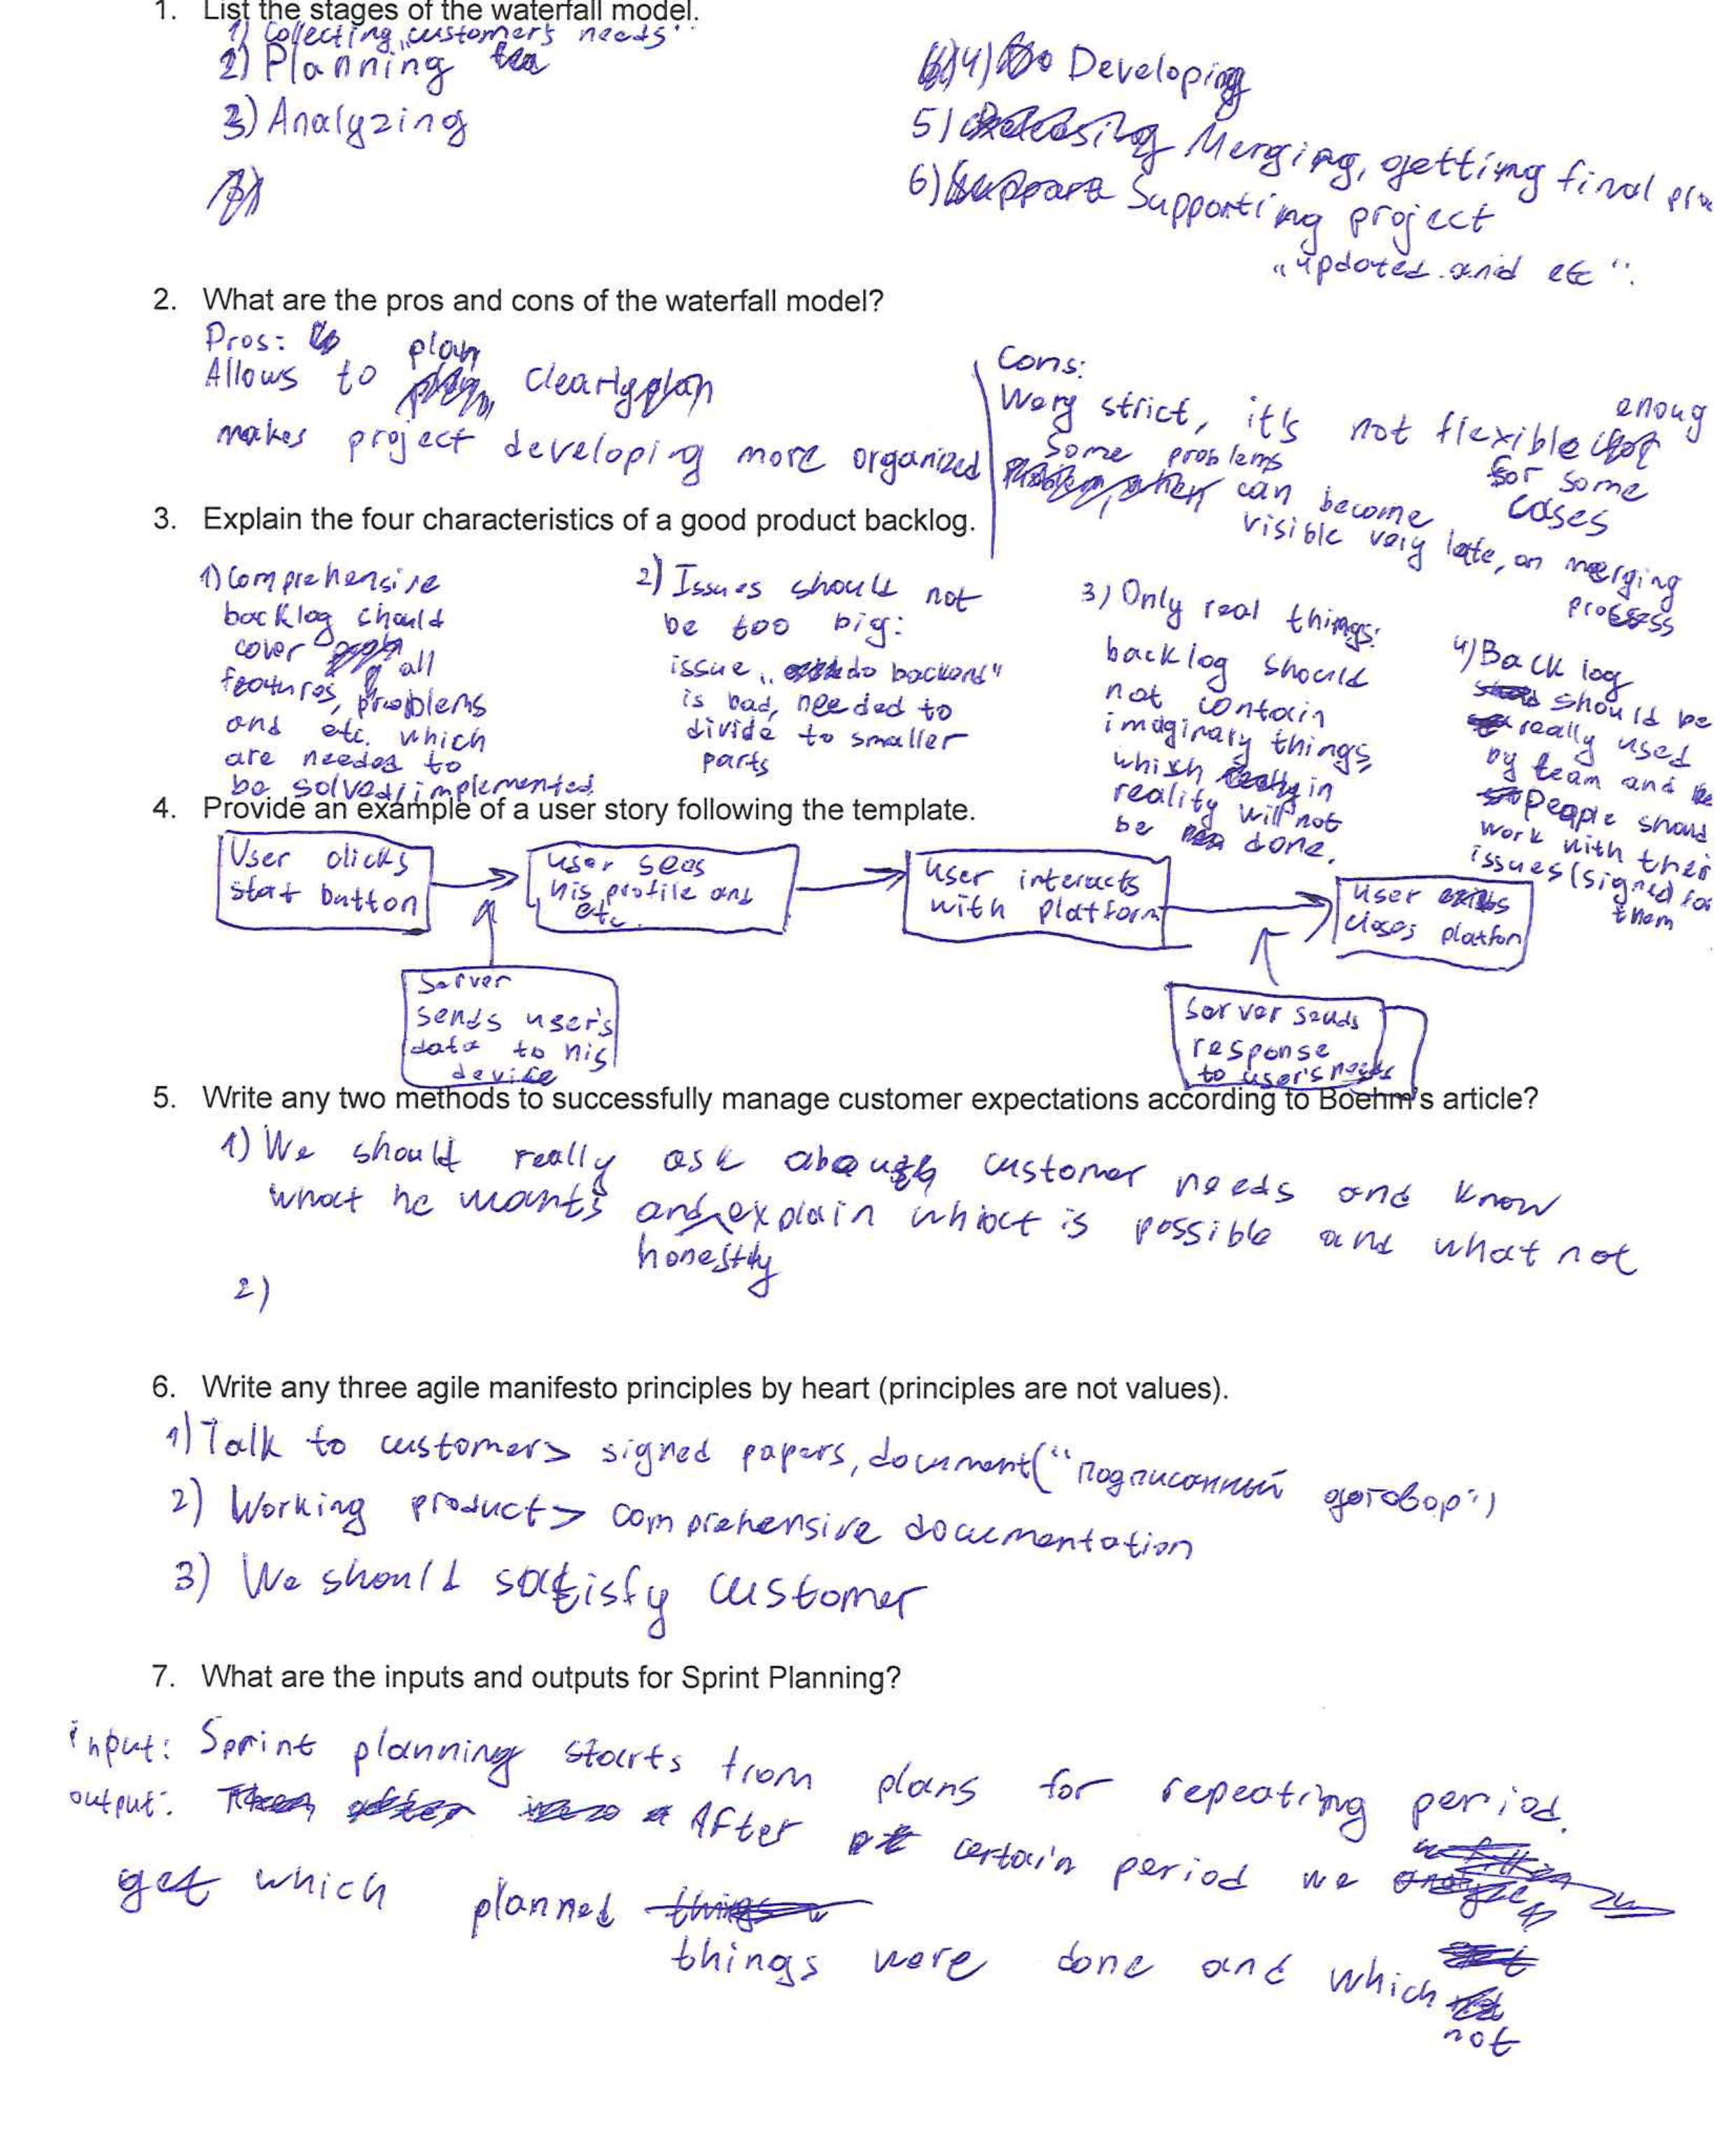 1. List the stages of the waterfall model.
1) Collecting „customer's needs“
2) Planning
3) Analyzing
4) Developing
5) Merging, getting final
6) Supporting project
„updated and etc“.
2. What are the pros and cons of the waterfall model?
Pros:
Allows to plan clearly
makes project developing more organized
Cons:
Wery strict, it's not flexible enoug
for some
cases
Some problems
can become
visible very late, on merging
process
3. Explain the four characteristics of a good product backlog.
1) Comprehensive
backlog should
cover all
features, problems
and etc. which
are needed to
be solved/implemented
2) Issues should not
be too big:
issue „do backend"
is bad, needed to
divide to smaller
parts
3) Only real things:
backlog should
not contain
imaginary things
which in
reality will not
be done.
4) Back log
should be
really used
by team and
people should
work with their
issues (signed for
them
4. Provide an example of a user story following the template.
User clicks
start button
user sees
his profile and
etc.
User interacts
with platform
user
closes platform
Server
sends user's
data to his
device
Server sends
response
to user's needs
5. Write any two methods to successfully manage customer expectations according to Boehm's article?
1) We should really ask about customer needs and know
what he wants and explain what is possible and what not
honestly
2)
6. Write any three agile manifesto principles by heart (principles are not values).
1) Talk to customers > signed papers, document ("подписанный договор")
2) Working product > comprehensive documentation
3) We should satisfy customer
7. What are the inputs and outputs for Sprint Planning?
input: Sprint planning starts from plans for repeating period.
output: After certain period we
get which planned
things were done and which
not